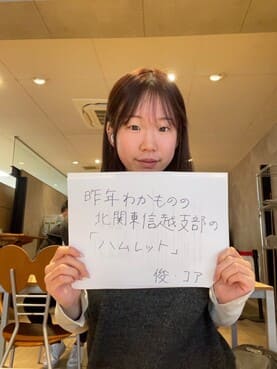 昨年わかものの
北関東信越支部の
「ハムレット」
俊・コア